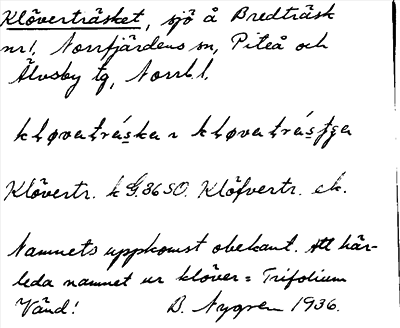 Klöverträsket, sjö å Bredträsk
nr 1, Norrfjärdens sn, Piteå och
Älvsby tg, Norrb. l.
kløvatráska ~ kløvatrásfga
Klövertr. k G. 36 SO. Klöfvertr. ek.
Namnets uppkomst obekant. Att här-
leda namnet ur klöver = Trifolium
Vänd! B. Nygren 1936.